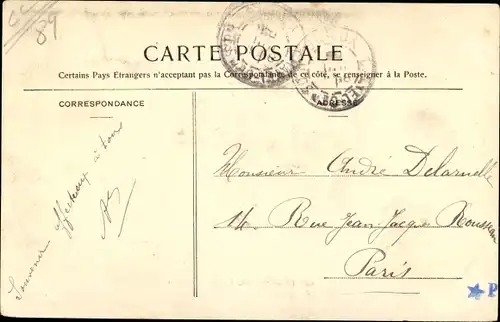 89
CARTE POSTALE
Certains Pays Etrangers n'acceptent pas la Correspondance de ce côté, se renseigner à la Poste.
CORRESPONDANCE
ADRESSE
Souvenir affectueux à tous
Monsieur André Delaruelle
14 Rue Jean Jacques Rousseau
Paris
P